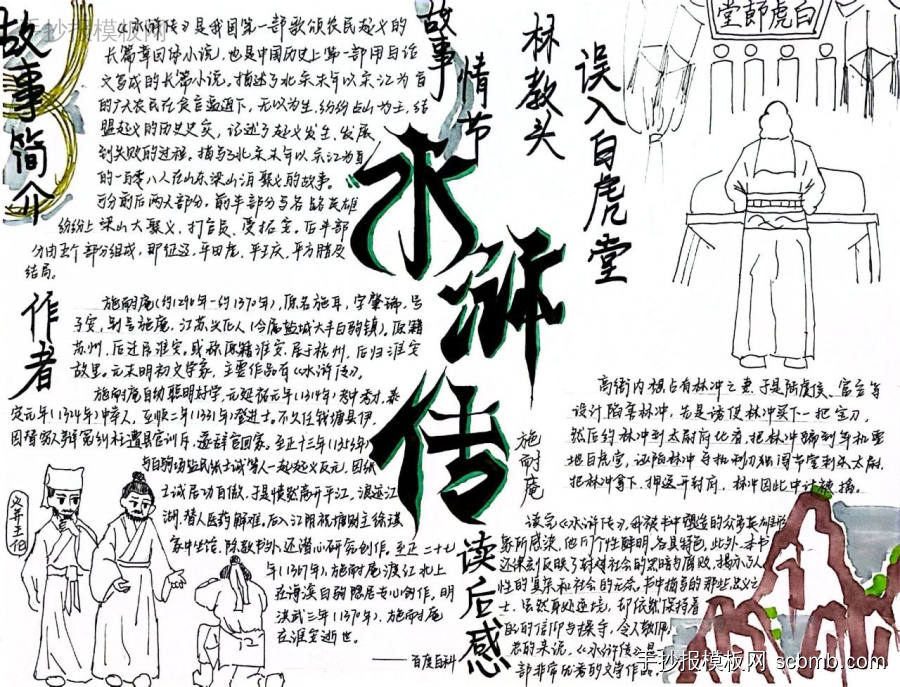 手抄报模板网
故事简介
《水浒传》是我国第一部歌颂农民起义的
长篇章回体小说，也是中国历史上第一部用白话
文写成的长篇小说。描述了北宋末年以宋江为首
的广大农民在贪官逼迫下，无以为生，纷纷占山为主，结
盟起义的历史史实，记述了起义发生、发展
到失败的过程。描写了北宋末年以宋江为首
的一百零八人在山东梁山泊聚义的故事。
可分前后两大部分，前半部分写各路英雄
纷纷上梁山大聚义，打官兵、受招安，后半部
分由五个部分组成，那征辽、平田虎、平王庆、平方腊及
结局。
作者
施耐庵（约1296年-约1370年），原名施耳，字肇瑞，号
子安，别名施庵，江苏兴化人（今属盐城大丰白驹镇）。原籍
苏州，后迁居淮安。或称原籍淮安，居于杭州，后归淮安
故里。元末明初文学家，主要作品有《水浒传》。
施耐庵自幼聪明好学，元延祐元年（1314年）考中秀才，泰
定元年（1324年）中举人，至顺二年（1331年）登进士。不久任钱塘县尹，
因替穷人辩冤纠枉遭县官训斥，遂辞官回家。至正十三年（1353年）
与白驹场盐民张士诚等人一起起义反元，因张
士诚居功自傲，于是愤然离开平江，浪迹江
湖，替人医药解难。后入江阴祝塘财主徐骐
家中坐馆，除教书外，还潜心研究创作。至正二十七
年（1367年），施耐庵渡江北上
在海滨白驹隐居专心创作。明
洪武三年（1370年），施耐庵
在淮安逝世。
——百度百科
火并王伦
水浒传
施耐庵
故事情节
林教头
误入白虎堂
白虎节堂
高衙内想占有林冲之妻，于是陆虞侯、富安等
设计陷害林冲，先是诱使林冲买下一把宝刀，
然后约林冲到太尉府比看，把林冲骗到军机要
地白虎堂，诬陷林冲
把林冲拿下，押送开封府，林冲因此中计被擒。
读后感
读完《水浒传》，我被书中塑造的众英雄形
象所感染，他们个性鲜明，各具特色，此外，本书
还深刻反映了封建社会的黑暗与腐败，揭示了人
性的复杂和社会的冗杂。书中描写的那些忠义之
士，虽然身处逆境，却依然保持着
自的信仰与操守，令人敬佩
的来说，《水浒传》是
部非常优秀的文学作品，
手抄报模板网 scbmb.com